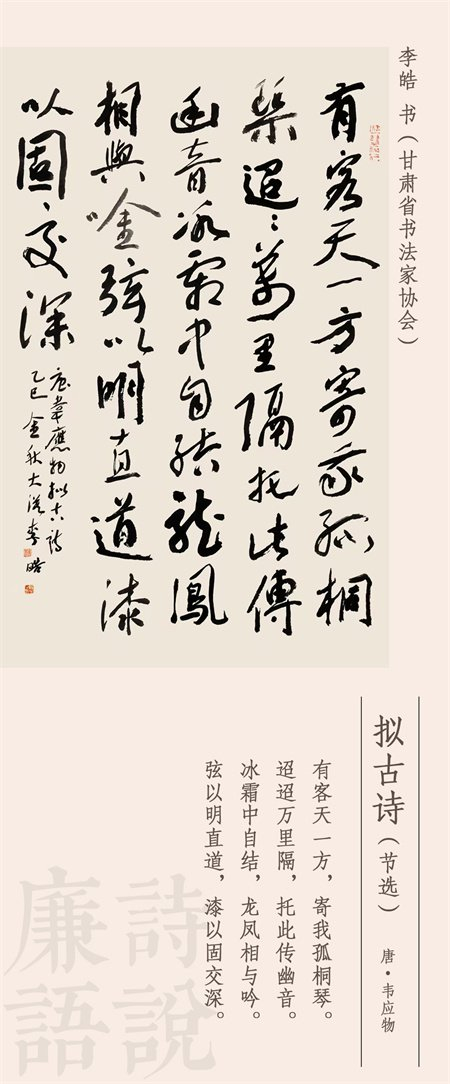 李皓 书（甘肃省书法家协会）
有客天一方寄我孤桐
琴迢〻萬里隔托此傳
幽音冰霜中自結龍鳳
相與唫弦以明直道漆
以固交深
韋應物拟古詩
乙巳金秋李皓
拟古诗（节选）
唐·韦应物
有客天一方，寄我孤桐琴。
迢迢万里隔，托此传幽音。
冰霜中自结，龙凤相与吟。
弦以明直道，漆以固交深。
詩說
廉語